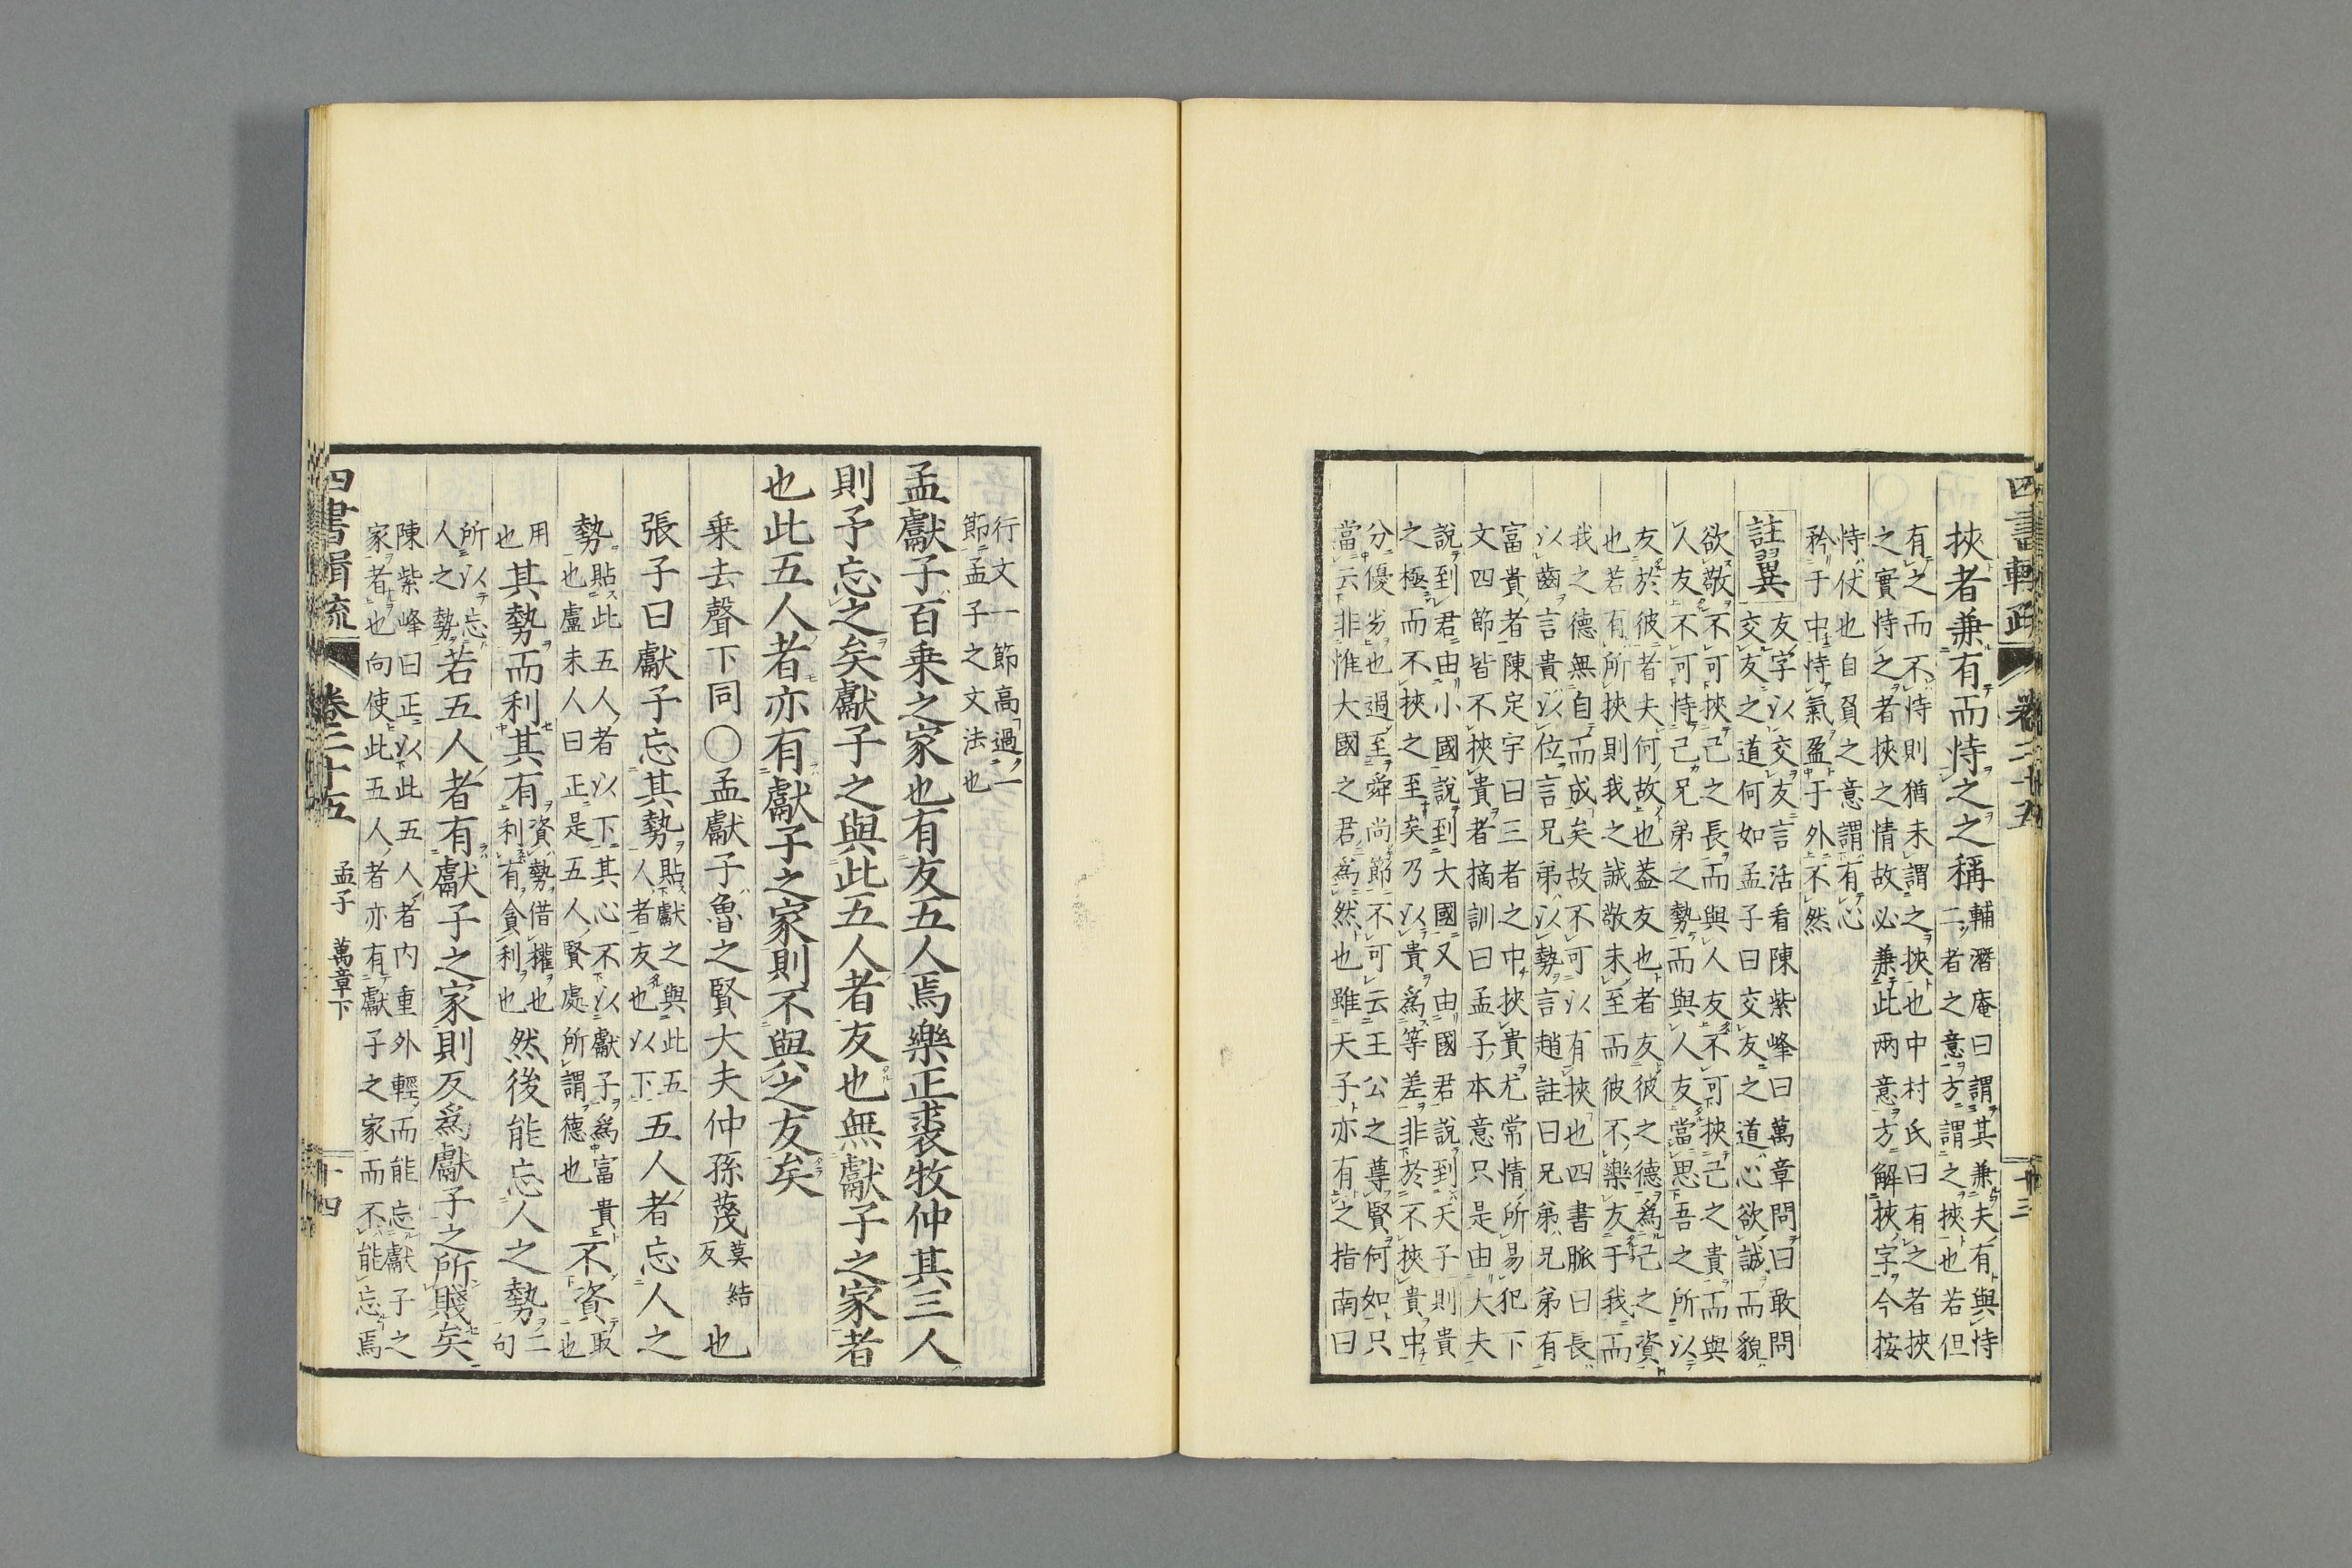 四書輯疏 卷二十五 十三
挾者兼有而恃之之稱
輔潛庵曰謂其兼夫有與恃
二者之意方謂之挾也若但
有之而不恃則猶未謂之挾也中村氏曰有之者挾
之實恃之者挾之情故必兼此兩意方解挾字今按
恃伏也自負之意謂有心
矜于中恃氣盈于外不然
註翼
友字以交友言活看陳紫峰曰萬章問曰敢問
交友之道何如孟子曰交友之道心欲誠而貌
欲敬不可挾己之長而與人友不可挾己之貴而與
人友不可恃己兄弟之勢而與人友當思吾之所以
友於彼者夫何故也蓋友也者友彼之德爲己之資
也若有所挾則我之誠敬未至而彼不樂友于我而
我之德無自而成矣故不可以有挾也四書脈曰長
以齒言貴以位言兄弟以勢言趙註曰兄弟兄弟有
富貴者陳定宇曰三者之中挾貴尤常情所易犯下
文四節皆不挾貴者摘訓曰孟子本意只是由大夫
說到君由小國說到大國又由國君說到天子則貴
之極而不挾之至矣乃以貴爲等差非於不挾貴中
分優劣也過至舜尚節不可云王公之尊賢何如只
當云非惟大國之君爲然也雖天子亦有之指南曰
行文一節高過一
節孟子之文法也
孟獻子百乘之家也有友五人焉樂正裘牧仲其三人
則予忘之矣獻子之與此五人者友也無獻子之家者
也此五人者亦有獻子之家則不與之友矣
乘去聲下同〇孟獻子魯之賢大夫仲孫蔑莫結反也
張子曰獻子忘其勢貼獻之與此五人者友也以下五人者忘人之
勢貼此五人者以下其心不以獻子爲富貴也盧未人曰正是五人賢處所謂德也不資取二也
用也其勢而利其有資勢借權也利有貪利也然後能忘人之勢二句
所以忘人之勢若五人者有獻子之家則反爲獻子之所賤矣
陳紫峰曰正以此五人者內重外輕而能忘獻子之
家者也向使此五人者亦有獻子之家而不能忘焉
四書輯疏 卷二十五 孟子 萬章下 十四